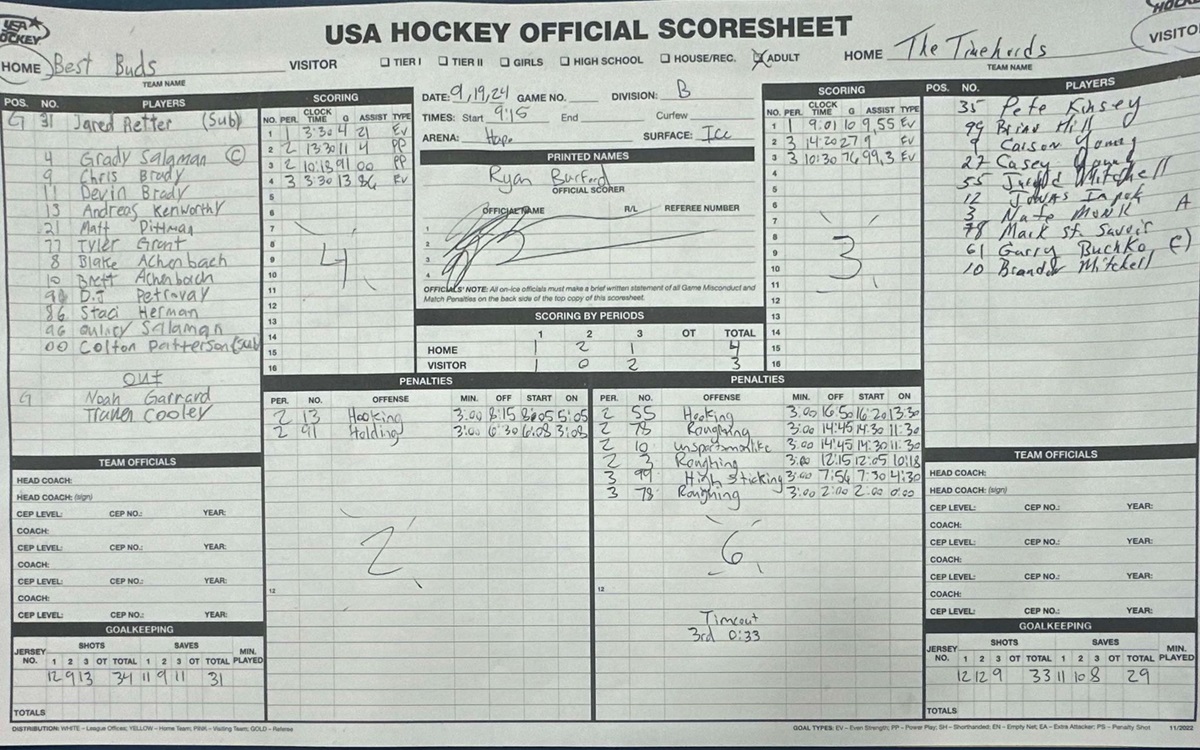 USA HOCKEY
USA HOCKEY OFFICIAL SCORESHEET
HOME Best Buds VISITOR
TEAM NAME
☐ TIER I ☐ TIER II ☐ GIRLS ☐ HIGH SCHOOL ☐ HOUSE/REC. ☒ ADULT
HOME The Timehords VISITO
TEAM NAME
POS. NO. PLAYERS
G 31 Jared Retter (Sub)
4 Grady Salaman (C)
9 Chris Brady
11 Devin Brady
13 Andreas Kenworthy
21 Matt Pittman
77 Tyler Grant
8 Blake Achenbach
10 Brett Achenbach
91 D.J Petrovay
86 Staci Herman
96 Quincy Salaman
00 Colton Patterson (sub)
OUT
G Noah Garrard
Cooley
SCORING
NO. PER. CLOCK TIME G ASSIST TYPE
1 1 3:30 4 21 EV
2 2 13:30 11 4 PP
3 2 10:18 91 00 PP
4 3 3:30 13 86 EV
5
6
7
8
9
10
11
12
13
14
15
16
4
DATE: 9,19,24 GAME NO. DIVISION: B
TIMES: Start 9:15 End Curfew
ARENA: Hope SURFACE: Ice
PRINTED NAMES
Ryan Burford
OFFICIAL SCORER
OFFICIAL NAME R/L REFEREE NUMBER
1
2
3
4
OFFICIALS' NOTE: All on-ice officials must make a brief written statement of all Game Misconduct and
Match Penalties on the back side of the top copy of this scoresheet.
SCORING BY PERIODS
1 2 3 OT TOTAL
HOME 1 2 1 4
VISITOR 1 0 2 3
SCORING
NO. PER. CLOCK TIME G ASSIST TYPE
1 1 9:01 10 9,55 EV
2 3 14:20 27 9 EV
3 3 10:30 76 99,3 EV
4
5
6
7
8
9
10
11
12
13
14
15
16
3
POS. NO. PLAYERS
35 Pete Kinsey
99 Brian Hill
9 Carson Young
27 Casey
55 Mitchell
12 Jonas
3 Nate Monk A
78 Mark St. Savoir
61 Garry Buchko (C)
10 Brandon Mitchell
PENALTIES
PER. NO. OFFENSE MIN. OFF START ON
2 13 Hooking 3:00 8:15 8:05 5:05
2 91 Holding 3:00 6:30 6:08 3:08
2
12
PENALTIES
PER. NO. OFFENSE MIN. OFF START ON
2 55 Hooking 3:00 16:50 16:20 13:30
2 78 Roughing 3:00 14:45 14:30 11:30
2 10 unsportsmanlike 3:00 14:45 14:30 11:30
2 3 Roughing 3:00 12:15 12:05 10:18
3 99 High sticking 3:00 7:54 7:30 4:30
3 78 Roughing 3:00 2:00 2:00 0:00
6
12
Timeout
3rd 0:33
TEAM OFFICIALS
HEAD COACH:
HEAD COACH: (sign)
CEP LEVEL: CEP NO.: YEAR:
COACH:
CEP LEVEL: CEP NO.: YEAR:
COACH:
CEP LEVEL: CEP NO.: YEAR:
COACH:
CEP LEVEL: CEP NO.: YEAR:
GOALKEEPING
JERSEY NO. SHOTS SAVES MIN. PLAYED
1 2 3 OT TOTAL 1 2 3 OT TOTAL
12 9 13 34 11 9 11 31
TOTALS
TEAM OFFICIALS
HEAD COACH:
HEAD COACH: (sign)
CEP LEVEL: CEP NO.: YEAR:
COACH:
CEP LEVEL: CEP NO.: YEAR:
COACH:
CEP LEVEL: CEP NO.: YEAR:
COACH:
CEP LEVEL: CEP NO.: YEAR:
GOALKEEPING
JERSEY NO. SHOTS SAVES MIN. PLAYED
1 2 3 OT TOTAL 1 2 3 OT TOTAL
12 12 9 33 11 10 8 29
TOTALS
DISTRIBUTION: WHITE – League Offices; YELLOW – Home Team; PINK – Visiting Team; GOLD – Referee
GOAL TYPES: EV – Even Strength; PP – Power Play; SH – Shorthanded; EN – Empty Net; EA – Extra Attacker; PS – Penalty Shot 11/2022